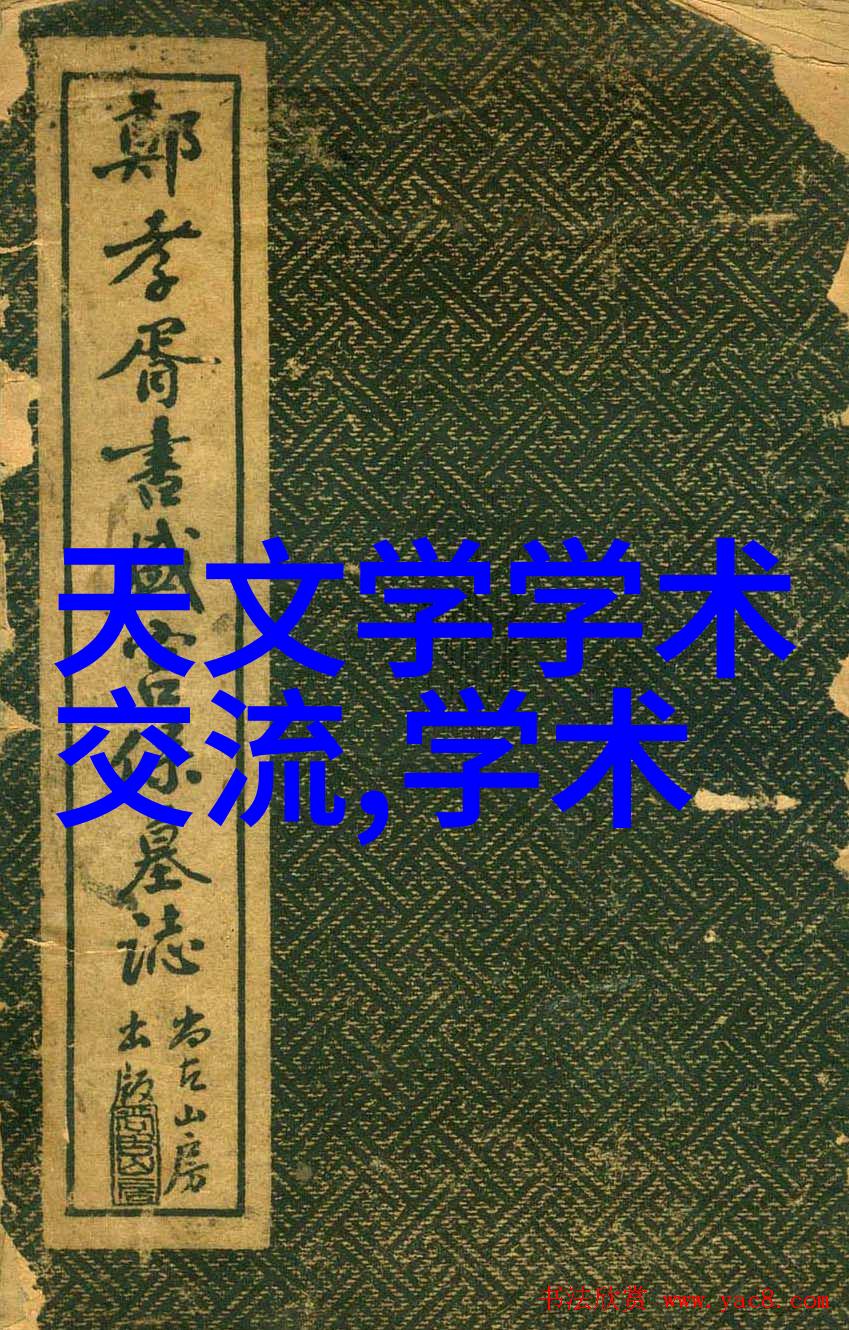 鄭孝胥書盛宮保墓誌
尚古山房
出版
天文学学术
交流,学术
书法欣赏 www.yac8.com